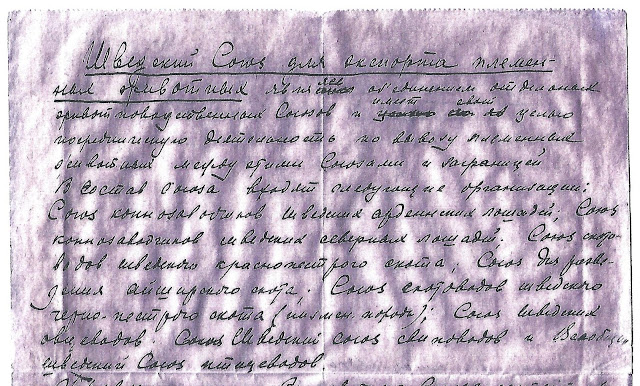 Шведский Союз для экспорта племен-
ных животных является объединением отдельных
животноводственных Союзов и имеет своей целью
посредническую деятельность по вывозу племенных
животных между этими Союзами и заграницей
В состав Союза входят следующие организации:
Союз коннозаводчиков шведских арденнских лошадей; Союз
коннозаводчиков шведских северных лошадей; Союз ското-
водов шведского краснопестрого скота; Союз для разве-
дения айширского скота; Союз скотоводов шведского
черно-пестрого скота (низмен. породы); Союз шведских
овцеводов. Союз Шведский союз свиноводов и Всеобщий
шведский Союз птицеводов